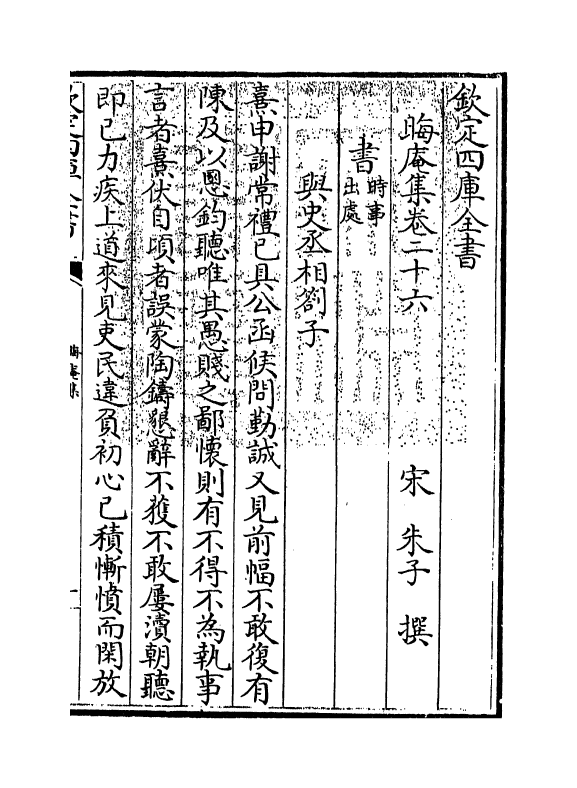 欽定四庫全書
晦庵集卷二十六
宋 朱子 撰
書 時事 出處
與史丞相劄子
熹申謝常禮已具公函候問勤誠又見前幅不敢復有
陳及以恩鈞聽唯其愚賤之鄙懷則有不得不為執事
言者熹伏自頃者誤蒙陶鑄懇辭不獲不敢屢瀆朝聽
即已力疾上道來見吏民違負初心已積慚憤而閑放
欽定四庫全書
晦庵集
一